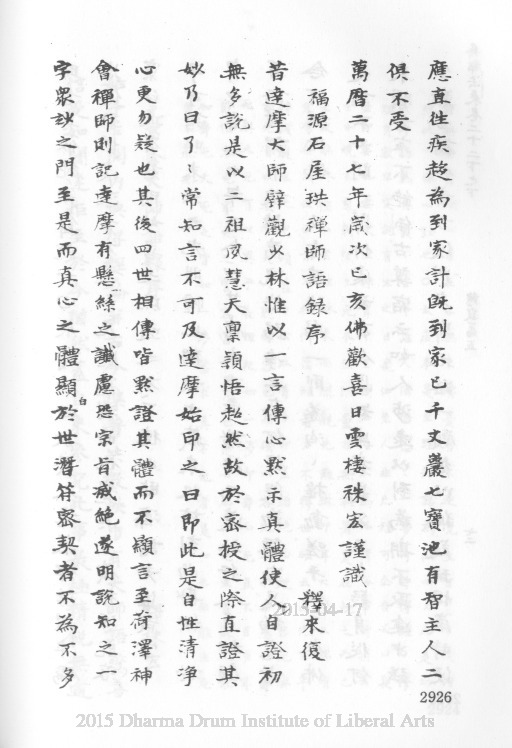 應直往疾趍為到家計旣到家已千丈巖七寶池有智主人二
俱不受
萬曆二十七年歲次己亥佛歡喜日雲棲袾宏謹識
福源石屋珙禪師語録序
釋來復
昔達摩大師壁觀少林惟以一言傳心默示真體使人自證初
無多說是以二祖夙慧天稟頴悟超然故於密授之際直證其
妙乃曰了〻常知言不可及達摩始印之曰即此是自性清净
心更勿疑也其後四世相傳皆默證其體而不顯言至荷澤神
會禪師則記達摩有懸絲之讖慮恐宗旨滅絶遂明說知之一
字衆玅之門至是而真心之體顯白於世潛符密契者不為不多
2926
2015-04-17
2015 Dharma Drum Institute of Liberal Arts